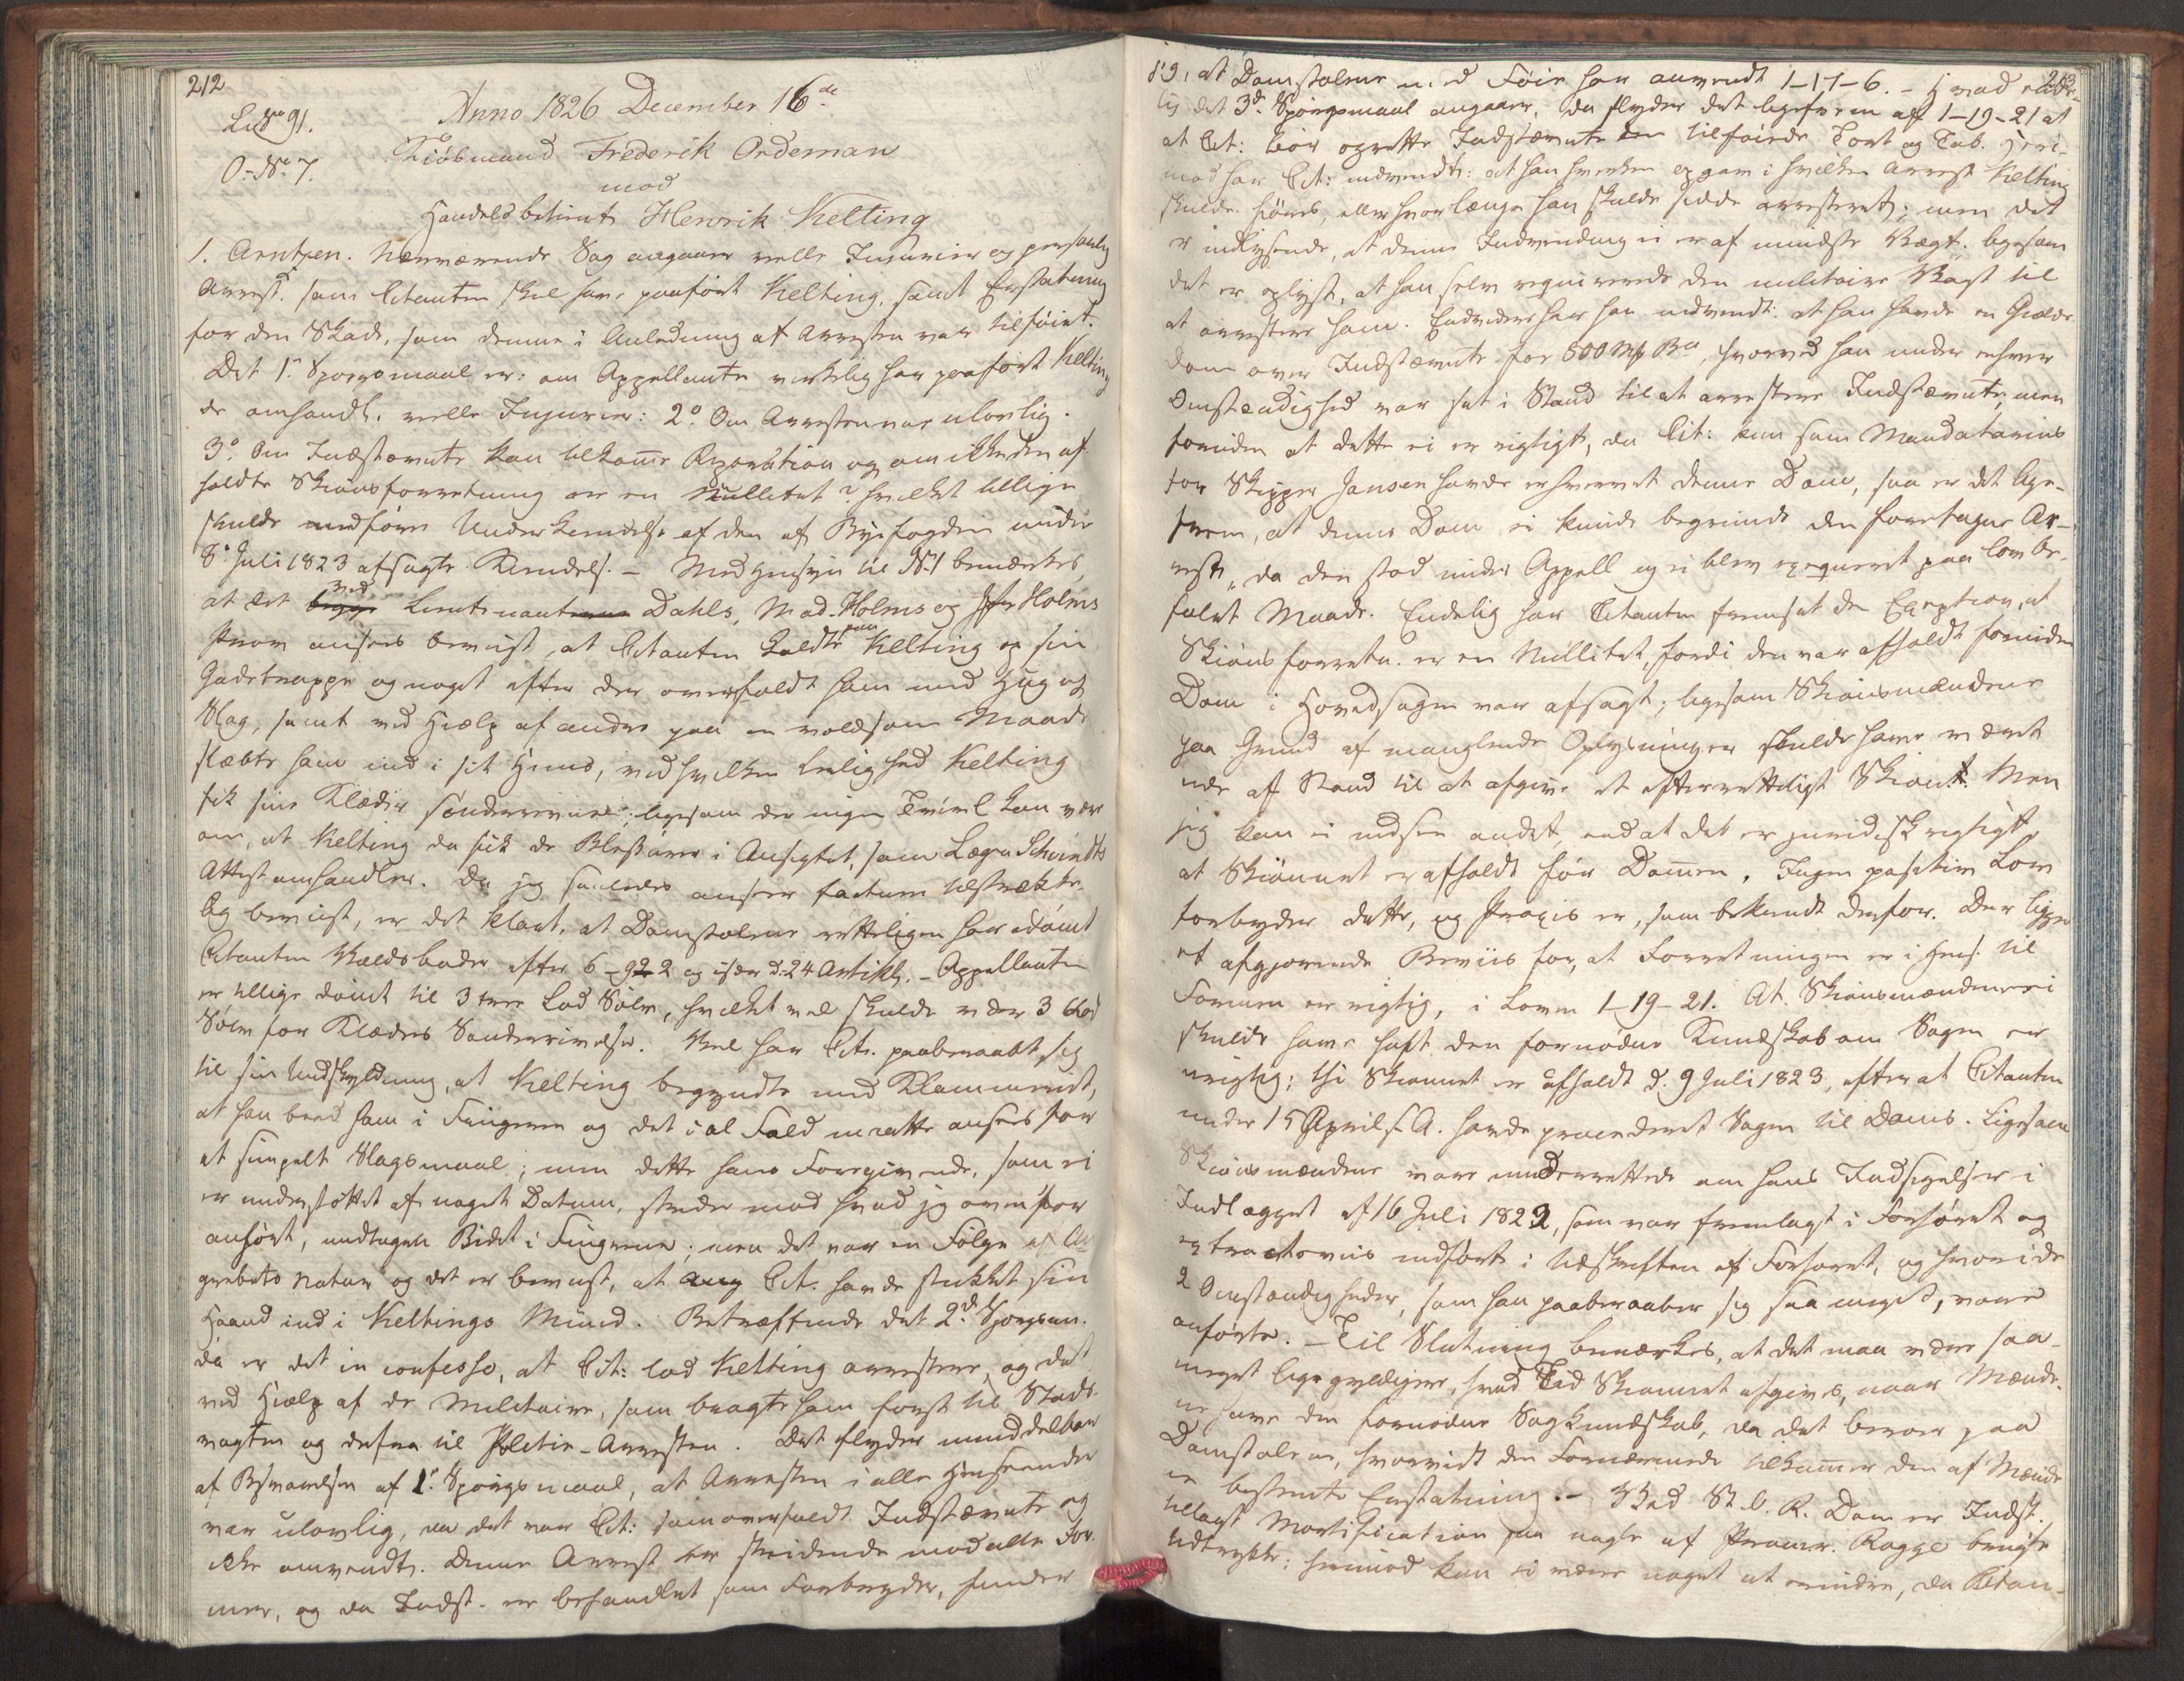 212
Anno 1826 December 16de
L. No 91.
O. No 7.
Kiøbmand Frederik Ordeman
mod
Handelsbetient Henrik Kelting
1. Arntzen. Nærværende Sag angaaer reelle Injurier og personlig
Arrest, som Citanten skal have paaført Kelting, samt Erstatning
for den Skade, som denne i Anledning af Arresten var tilføiet.
Det 1e Spørgsmaal er: om Appellanten virkelig har paaført Kelting
de omhandl. reelle Injurier: 2o Om Arresten var ulovlig.
3o Om Indstævnte kan bekomme Reparation og om ikke den af-
holdte Skiønsforretning er en Nullitet? hvilket tillige
skulde medføre Underkiendelse af den af Byefogden under
8e Juli 1823 afsagte Kiendelse. – Med Hensyn til No 1 bemærkes,
at det ved Lieutenant Dahls, Mad. Holms og Jfr Holms
Prov ansees beviist, at Citanten kaldte paa Kelting op sin
Gadetrappe og noget efter der overfaldt ham med Hug og
Slag, samt ved Hielp af andre paa en voldsom Maade
slæbte ham ind i sit Huus, ved hvilken Leilighed Kelting
fik sine Klæder sønderrevne; ligesom der ingen Tvivl kan være
om, at Kelting da fik de Blessurer i Ansigtet, som Læge Schvindts
Attest omhandler. Da jeg saaledes anseer factum tilstrække-
lig beviist, er det klart, at Domstolene rettelig har idømt
Citanten Voldsbøder efter 6-9-22 og især d: 24 Artikl. – Appellanten
er tillige dømt til 3 tree Lod Sølv, hvilket vel skulde være 3 Lod
Sølv for Klæders Sønderrivelse. Vel har Cit. paaberaabt sig
til sin Undskyldning, at Kelting begyndte med Klammeriet,
at han beed ham i Fingeren og det i al Fald maatte ansees for
et simpelt Slagsmaal; men dette hans Foregivende, som ei
er understøttet af noget Datum, strider mod hvad jeg ovenfor
anført, undtagen Bidet i Fingrene; men det var en Følge af An-
grebets Natur og det er beviist, at Cit. havde stukket sin
Haand ind i Keltings Mund. Betræffende det 2de Spørgsm.
da er det in confesso, at Cit: lod Kelting arrestere, og det
ved Hielp af de Militaire, som bragte ham først til Stads-
vagten og derfra til Politie-Arresten. Det flyder umiddelbar
af Besvarelsen af 1e Spørgsmaal, at Arresten i alle Henseender
var ulovlig, da det var Cit: som overfaldt Indstævnte og
ikke omvendt. Denne Arrest er stridende mod alle For-
mer, og da Indst. er behandlet som Forbryder, finder
213
jeg, at Domstolene med Føie har anvendt 1-17-6. – Hvad ende-
lig det 3de Spørgsmaal angaaer, da flyder det ligefrem af 1-19-21 at
at Cit: bør oprette Indstævnte den tilføiede Tort og Tab. Heri-
mod har Cit: indvendt: at han hverken opgav i hvilken Arrest Kelting
skulde føres, eller hvorlænge han skulde sidde arresteret; men det
er indlysende, at denne Indvending ei er af mindste Vægt, ligesom
det er oplyst, at han selv requirerede den militaire Vagt til
at arrestere ham. Endvidere har han indvendt: at han havde en Gields-
dom over Indstævnte for 500 Mk Bco, hvorved han under enhver
Omstændighed var sat i Stand til at arrestere Indstævnte, men
foruden at dette ei er rigtigt, da Cit: kun som Mandatarius
for Skipper Jansen havde erhvervet denne Dom, saa er det lige-
frem, at denne Dom ei kunde begrunde den foretagne Ar-
rest, da den stod under Appell og ei blev exequeret paa lovbe-
falet Maade. Endelig har Citanten fremsat den Exeption, at
Skiønsforretn. er en Nullitet, fordi den var afholdt forinden
Dom i Hovedsagen var afsagt; ligesom Skiønsmændene
paa Grund af manglende Oplysninger skulde have været
ude af Stand til at afgive et efterretteligt Skiøn. Men
jeg kan ei indsee andet, end at det er juridisk rigtigt,
at Skiønnet er afholdt før Dommen. Ingen positiv Lov
forbyder dette, og Praxis er, som bekiendt derfor. Der ligger
et afgjørende Beviis for, at Forretningen er i Hens. til
Formen er rigtig, i Loven 1-19-21. At Skiønsmændene ei
skulde have havt den fornødne Kundskab om Sagen er
urigtig; thi Skiønnet er afholdt d. 9 Juli 1823, efter at Citanten
under 15 April s. A. havde procederet Sagen til Doms. Ligesaa
Skiønsmændene vare underrettede om hans Indsigelser i
Indlægget af 16 Juli 1822, som var fremlagt i Forhøret og
extractoviis indført i Udskriften af Forhøret, og hvori de
2 Omstændigheder, som han paaberaaber sig saa meget, vare
anførte. – Til Slutning bemærkes, at det maa være saa-
meget ligegyldigere, hvad Tid Skiønnet afgives, naar Mænde-
ne have den fornødne Sagkundskab, da det beroer paa
Domstolene, hvorvidt den Fornærmede tilkommer den af Mænde-
ne bestemte Erstatning. – Ved St. O. R. Dom er Indst.
tillagt Mortification paa nogle af Procur. Rogge brugte
Udtrykke; hermod kan ei være noget at erindre, da Citan-